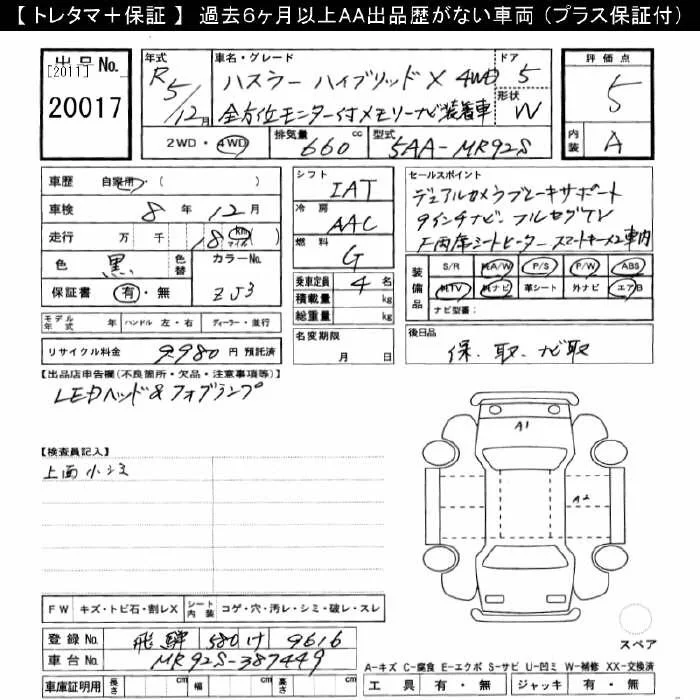 【 トレタマ＋保証 】 過去6ヶ月以上AA出品歴がない車両 (プラス保証付)
出品No.
[2011]
20017
年式
R5/12月
車名・グレード
ハスラー ハイブリッドX 4WD
全方位モニター付メモリーナビ装着車
ドア
5
形状
W
2WD・4WD
排気量
660 cc
型式
5AA-MR92S
評価点
5
内装
A
車歴 自家用 ( )
車検 8年 12月
走行 万 千 18 km マイル ( )
色 黒
色替
カラーNo.
ZJ3
保証書 有・無
モデル年式 年 ハンドル 左・右 ディーラー・並行
リサイクル料金 9980 円 預託済
シフト
IAT
冷房
AAC
燃料
G
乗車定員 4 名
積載量 kg
総重量 kg
名変期限
月 日
セールスポイント
デュアルカメラブレーキサポート
9インチナビ、フルセグTV
F両席シートヒーター スマートキー×2車内
装備品
S/R
純A/W
P/S
P/W
ABS
純TV
純ナビ
革シート
外ナビ
エアB
ナビ型番:
後日品
保、取、ナビ取
【出品店申告欄(不良箇所・欠品・注意事項等)】
LEDヘッド&フォグランプ
【検査員記入】
上面小シミ
A1
A2
スペア
FW キズ・トビ石・割レX シート内装 コゲ・穴・汚レ・シミ・破レ・スレ
登録No. 飛騨 580 け 9616
車台No. MR92S-387449
車庫証明用 長さ cm 幅 cm 高さ cm
A-キズ C-腐食 E-エクボ S-サビ U-凹ミ W-補修 XX-交換済
工具 有・無 ジャッキ 有・無